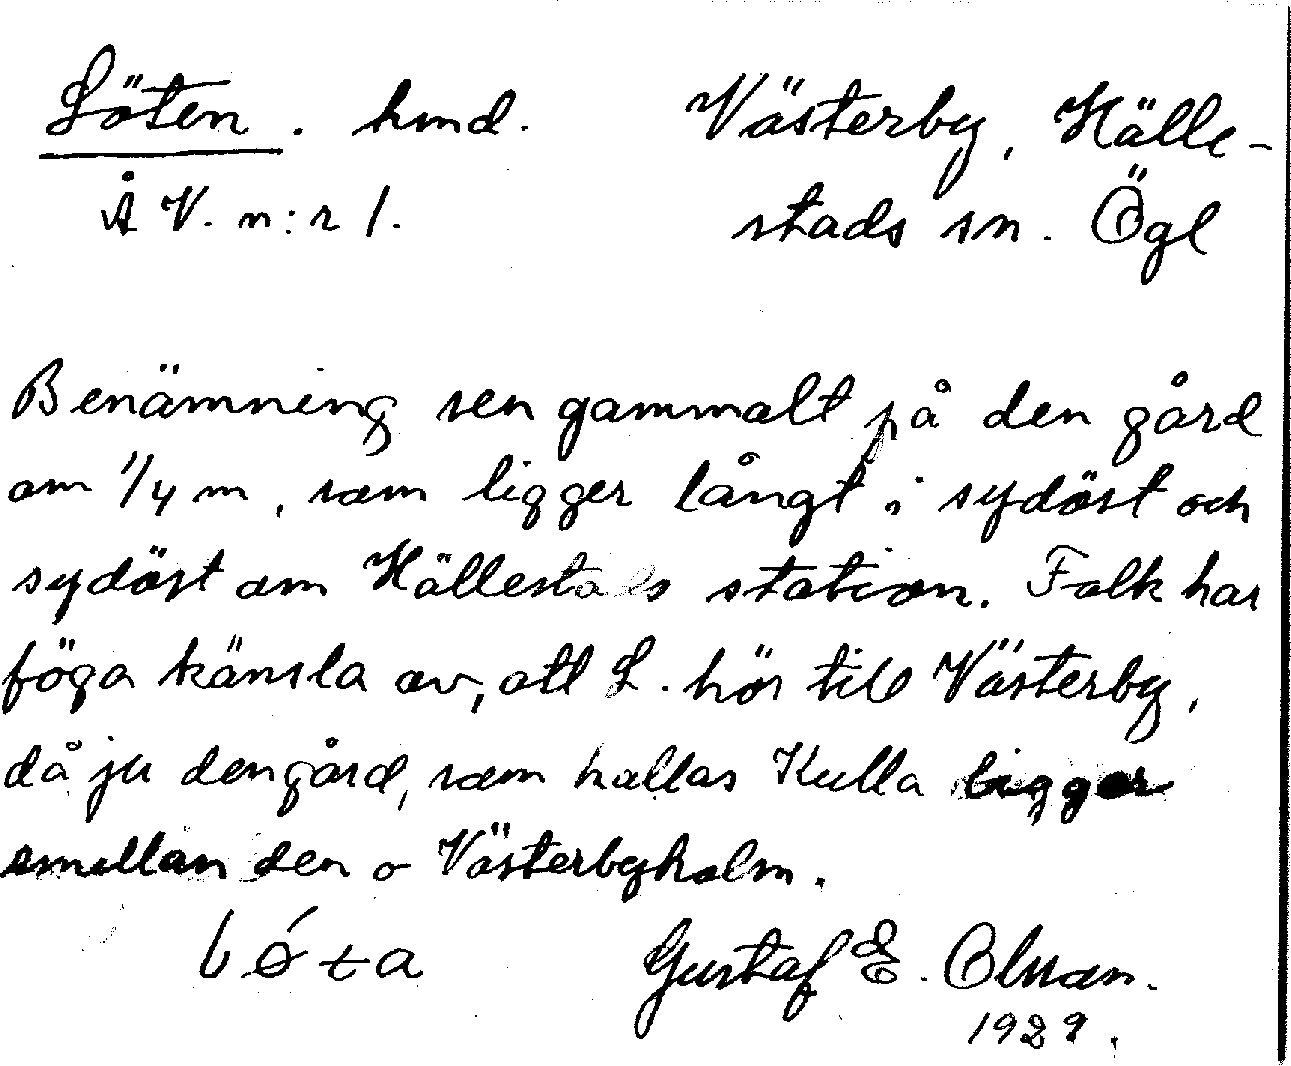 Löten. hmd. Västerby, Hälle-
Å V. n:r 1. stads sn. Ögl
Benämning sen gammalt på den gård
om 1/4 m, som ligger långt i sydöst och
sydöst om Hällestads station. Folk har
föga känsla av, att L. hör till Västerby,
då ju den gård, som kallas Kulla ligger
emellan den o Västerbyholm.
Gustaf E.
1929.